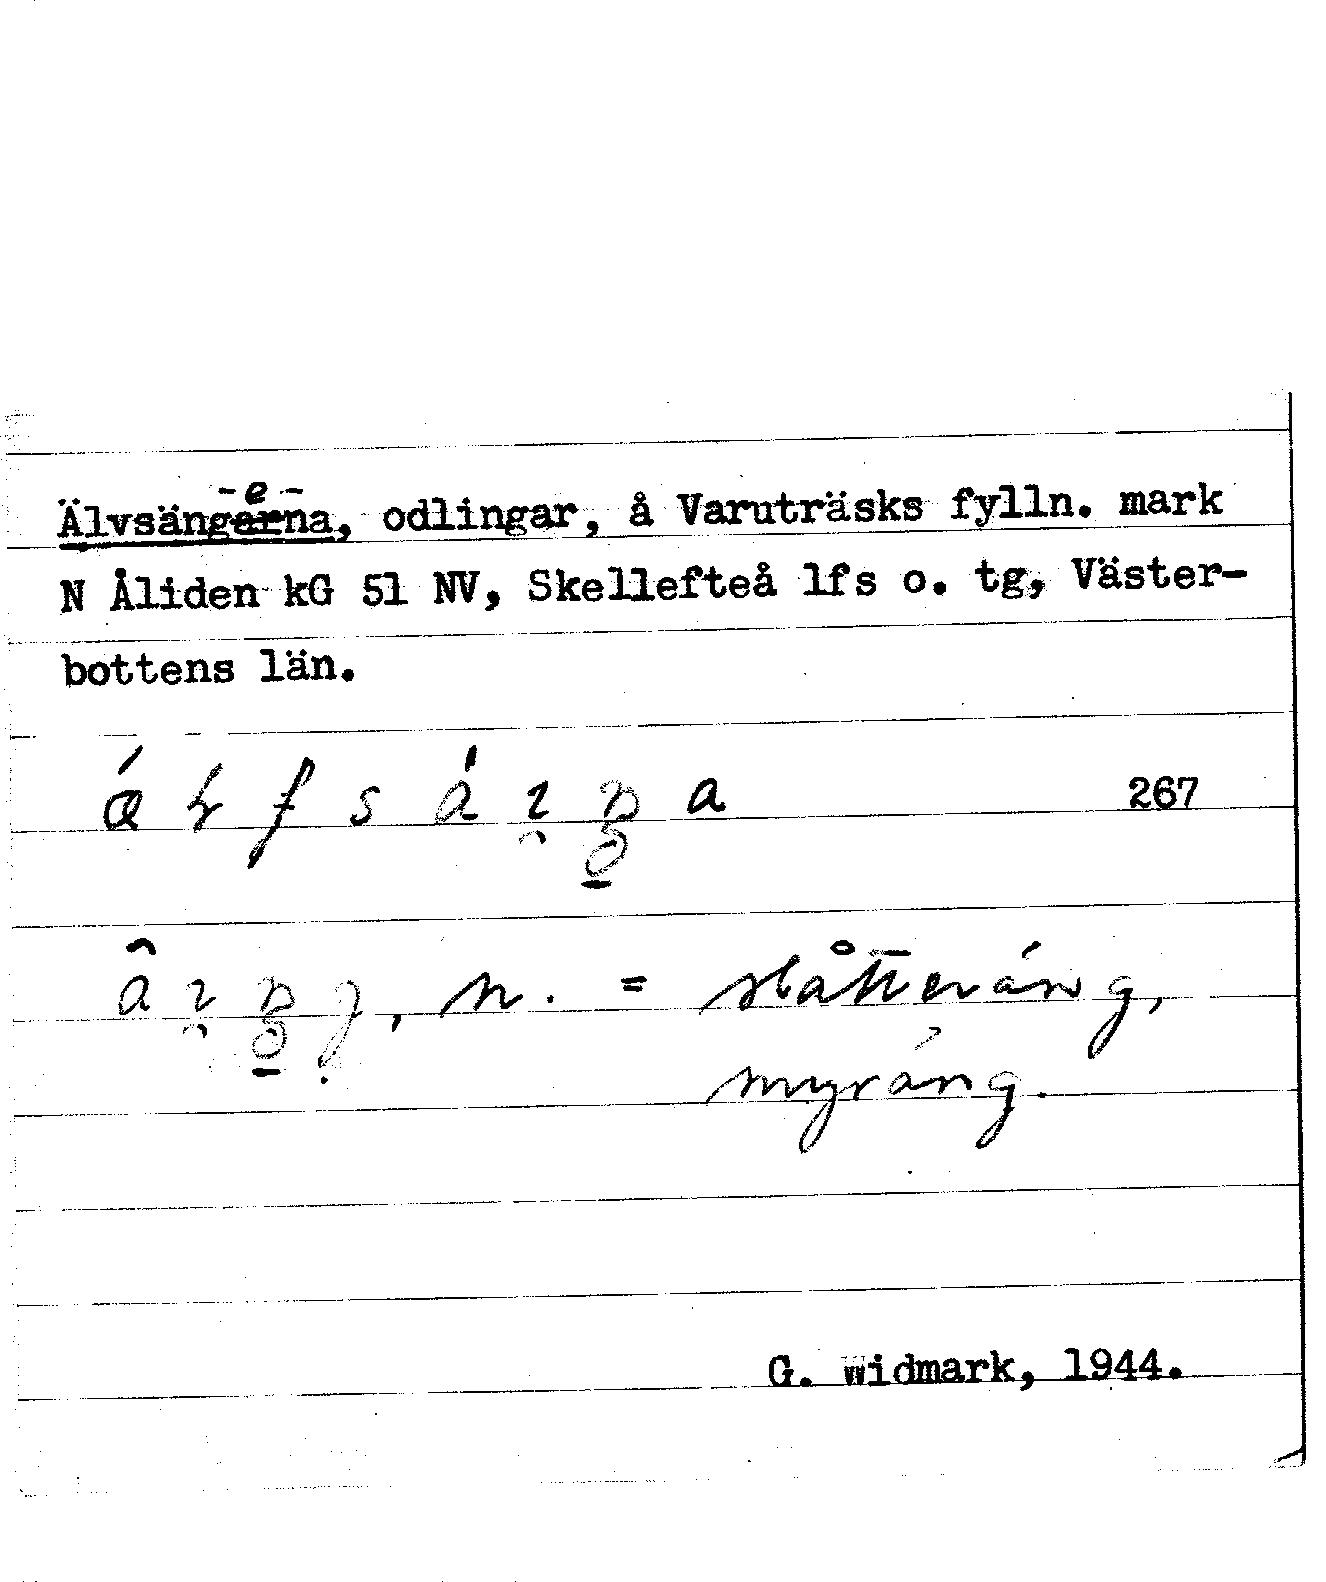 -e-
Älvsängarna, odlingar, å Varuträsks fylln. mark
N Åliden kG 51 NV, Skellefteå lfs o. tg, Väster-
bottens län.
267
n. = slåtteräng,
myräng.
G. Widmark, 1944.